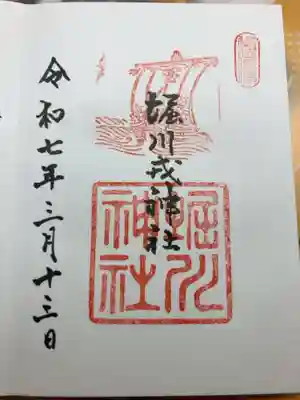 堀川戎神社
堀川
神社
令和七年三月十三日